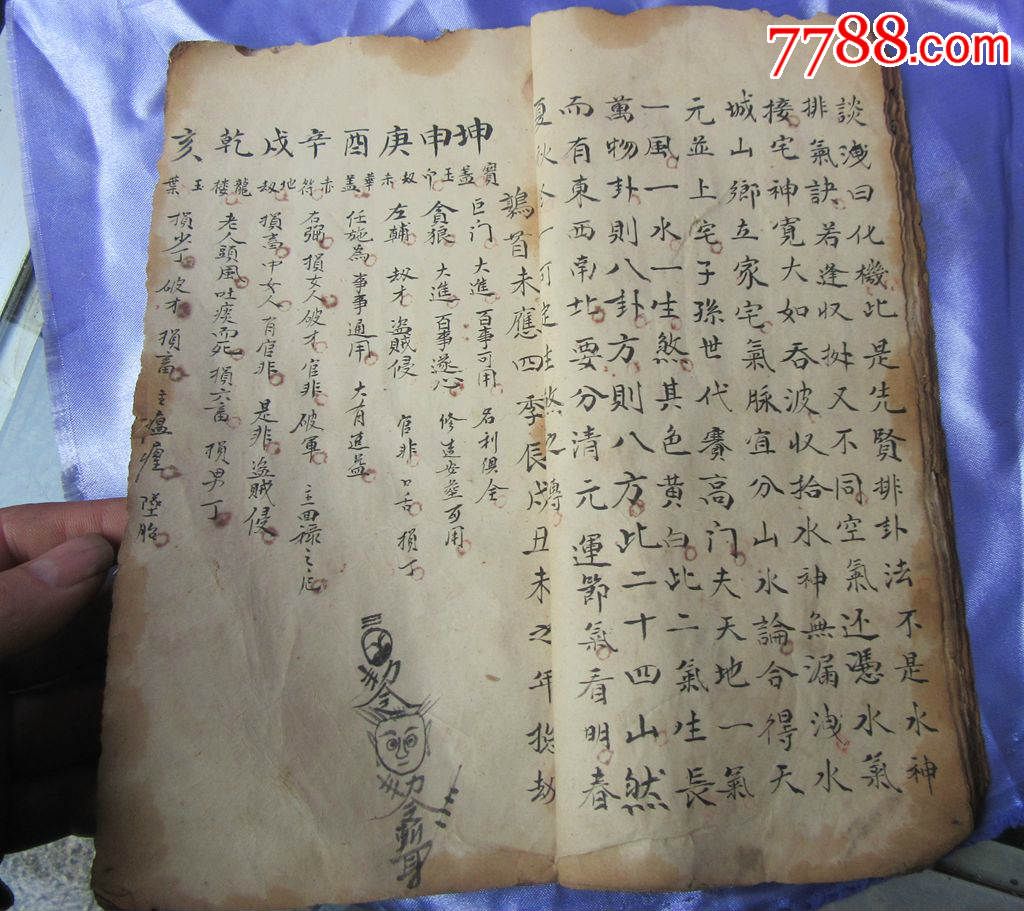 7788.com
談洩曰化機此是先賢排卦法不是水神
排氣訣若逢收 又不同空氣还憑水氣
接宅神寬大如吞波收拾水神無漏洩水
城山鄉立家宅氣脈宜分山水論合得天
元並上宅子孫世代賽高门夫天地一氣
一風一水一生煞其色黄白比二氣生長
萬物卦則八卦方則八方此二十四山然
而有東西南北要分清元運節氣看明春
夏秋冬 可 生煞之
鶉首未應四季辰戌丑未之年 劫
坤申庚酉辛戌乾亥
寶盖 巨门 大進 百事可用 名利俱全
玉印 貪狼 大進 百事遂心 修造安塟可用
劫赤 左輔 劫才 盗賊侵 官非 口舌 損丁
華盖 任施為 事事通用 大有進益
赤符 右弼 損女人 破才 官非 破軍 主回禄之厄
地劫 損畜 中女人 有官非 是非 盗賊侵
龍楼 老人頭風吐痰而死 損六畜 損男丁
玉葉 損少丁 破才 損畜 主瘟 墜胎